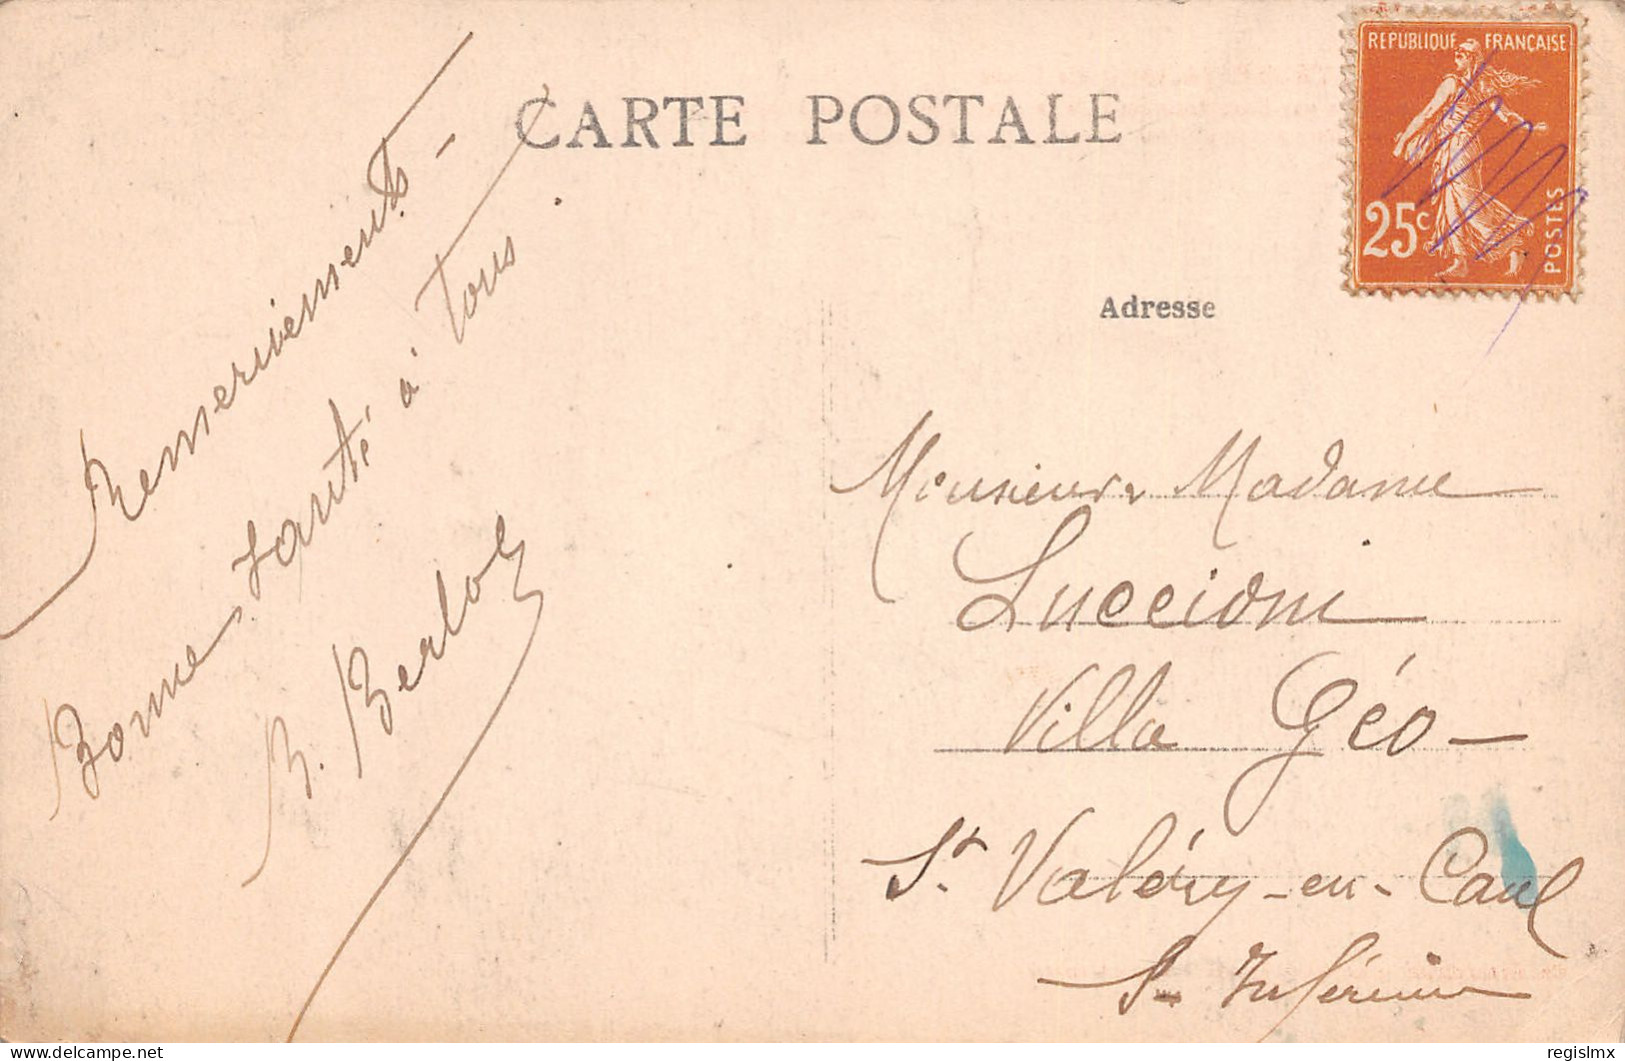 CARTE POSTALE
REPUBLIQUE FRANÇAISE
25c
POSTES
Remerciements -
Bonne santé à tous.
Adresse
Monsieur & Madame
Luccioni
Villa Géo -
St Valéry-en-Caux
S. Inférieure
regislmx